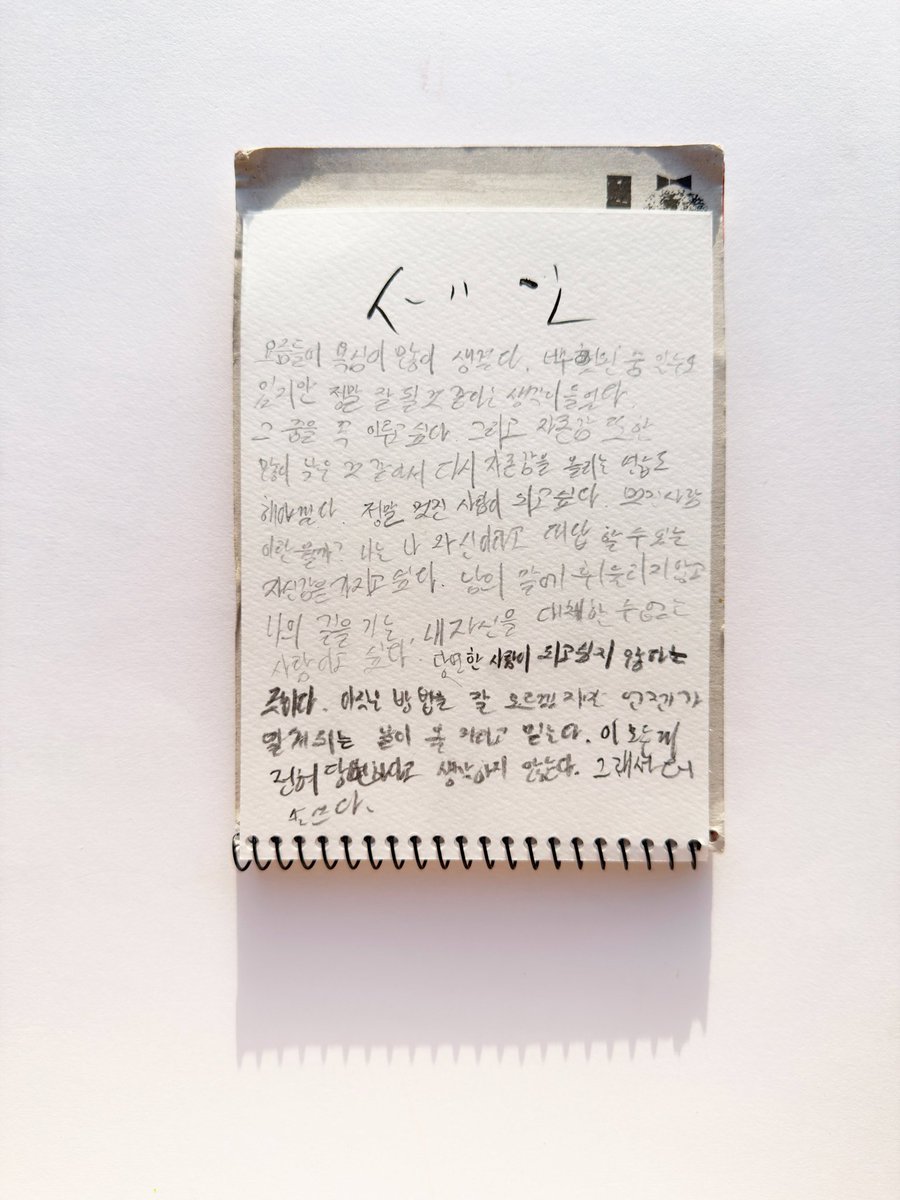 요즘들어 욕심이 많이 생겼다. 꿈 일수도
있지만 정말 잘 될 것 같다는 생각이 들었다.
그 꿈을 꼭 이루고 싶다. 그리고 자존감 또한
많이 낮은 것 같아서 다시 자존감을 올리는 연습도
해야겠다. 정말 멋진 사람이 되고 싶다. 멋진 사람
이란 뭘까? 나는 나 자신이라고 대답 할 수 있는
자신감을 가지고 싶다. 남의 말에 휘둘리지 않고
나의 길을 가는, 내 자신을 대체할 수 없는
사람이고 싶다. 당연한 사람이 되고싶지 않다는
것이다. 아직은 방법을 잘 모르겠지만 언젠가
알게 되는 날이 올 거라고 믿는다. 이 모든게
전혀 당연하다고 생각하지 않는다. 그래서 더